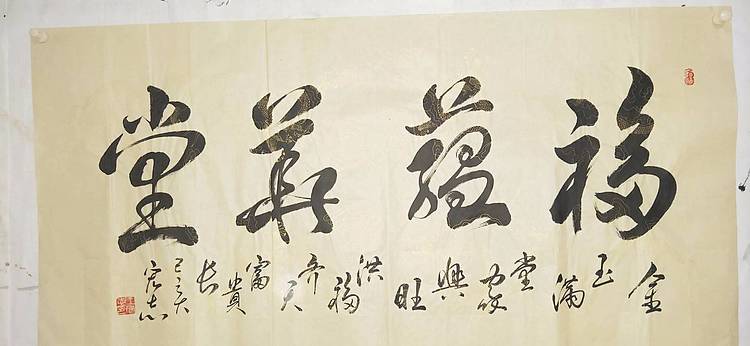 福蘊華堂
金玉滿堂家興旺
洪福齐天富貴长
己亥
宏志